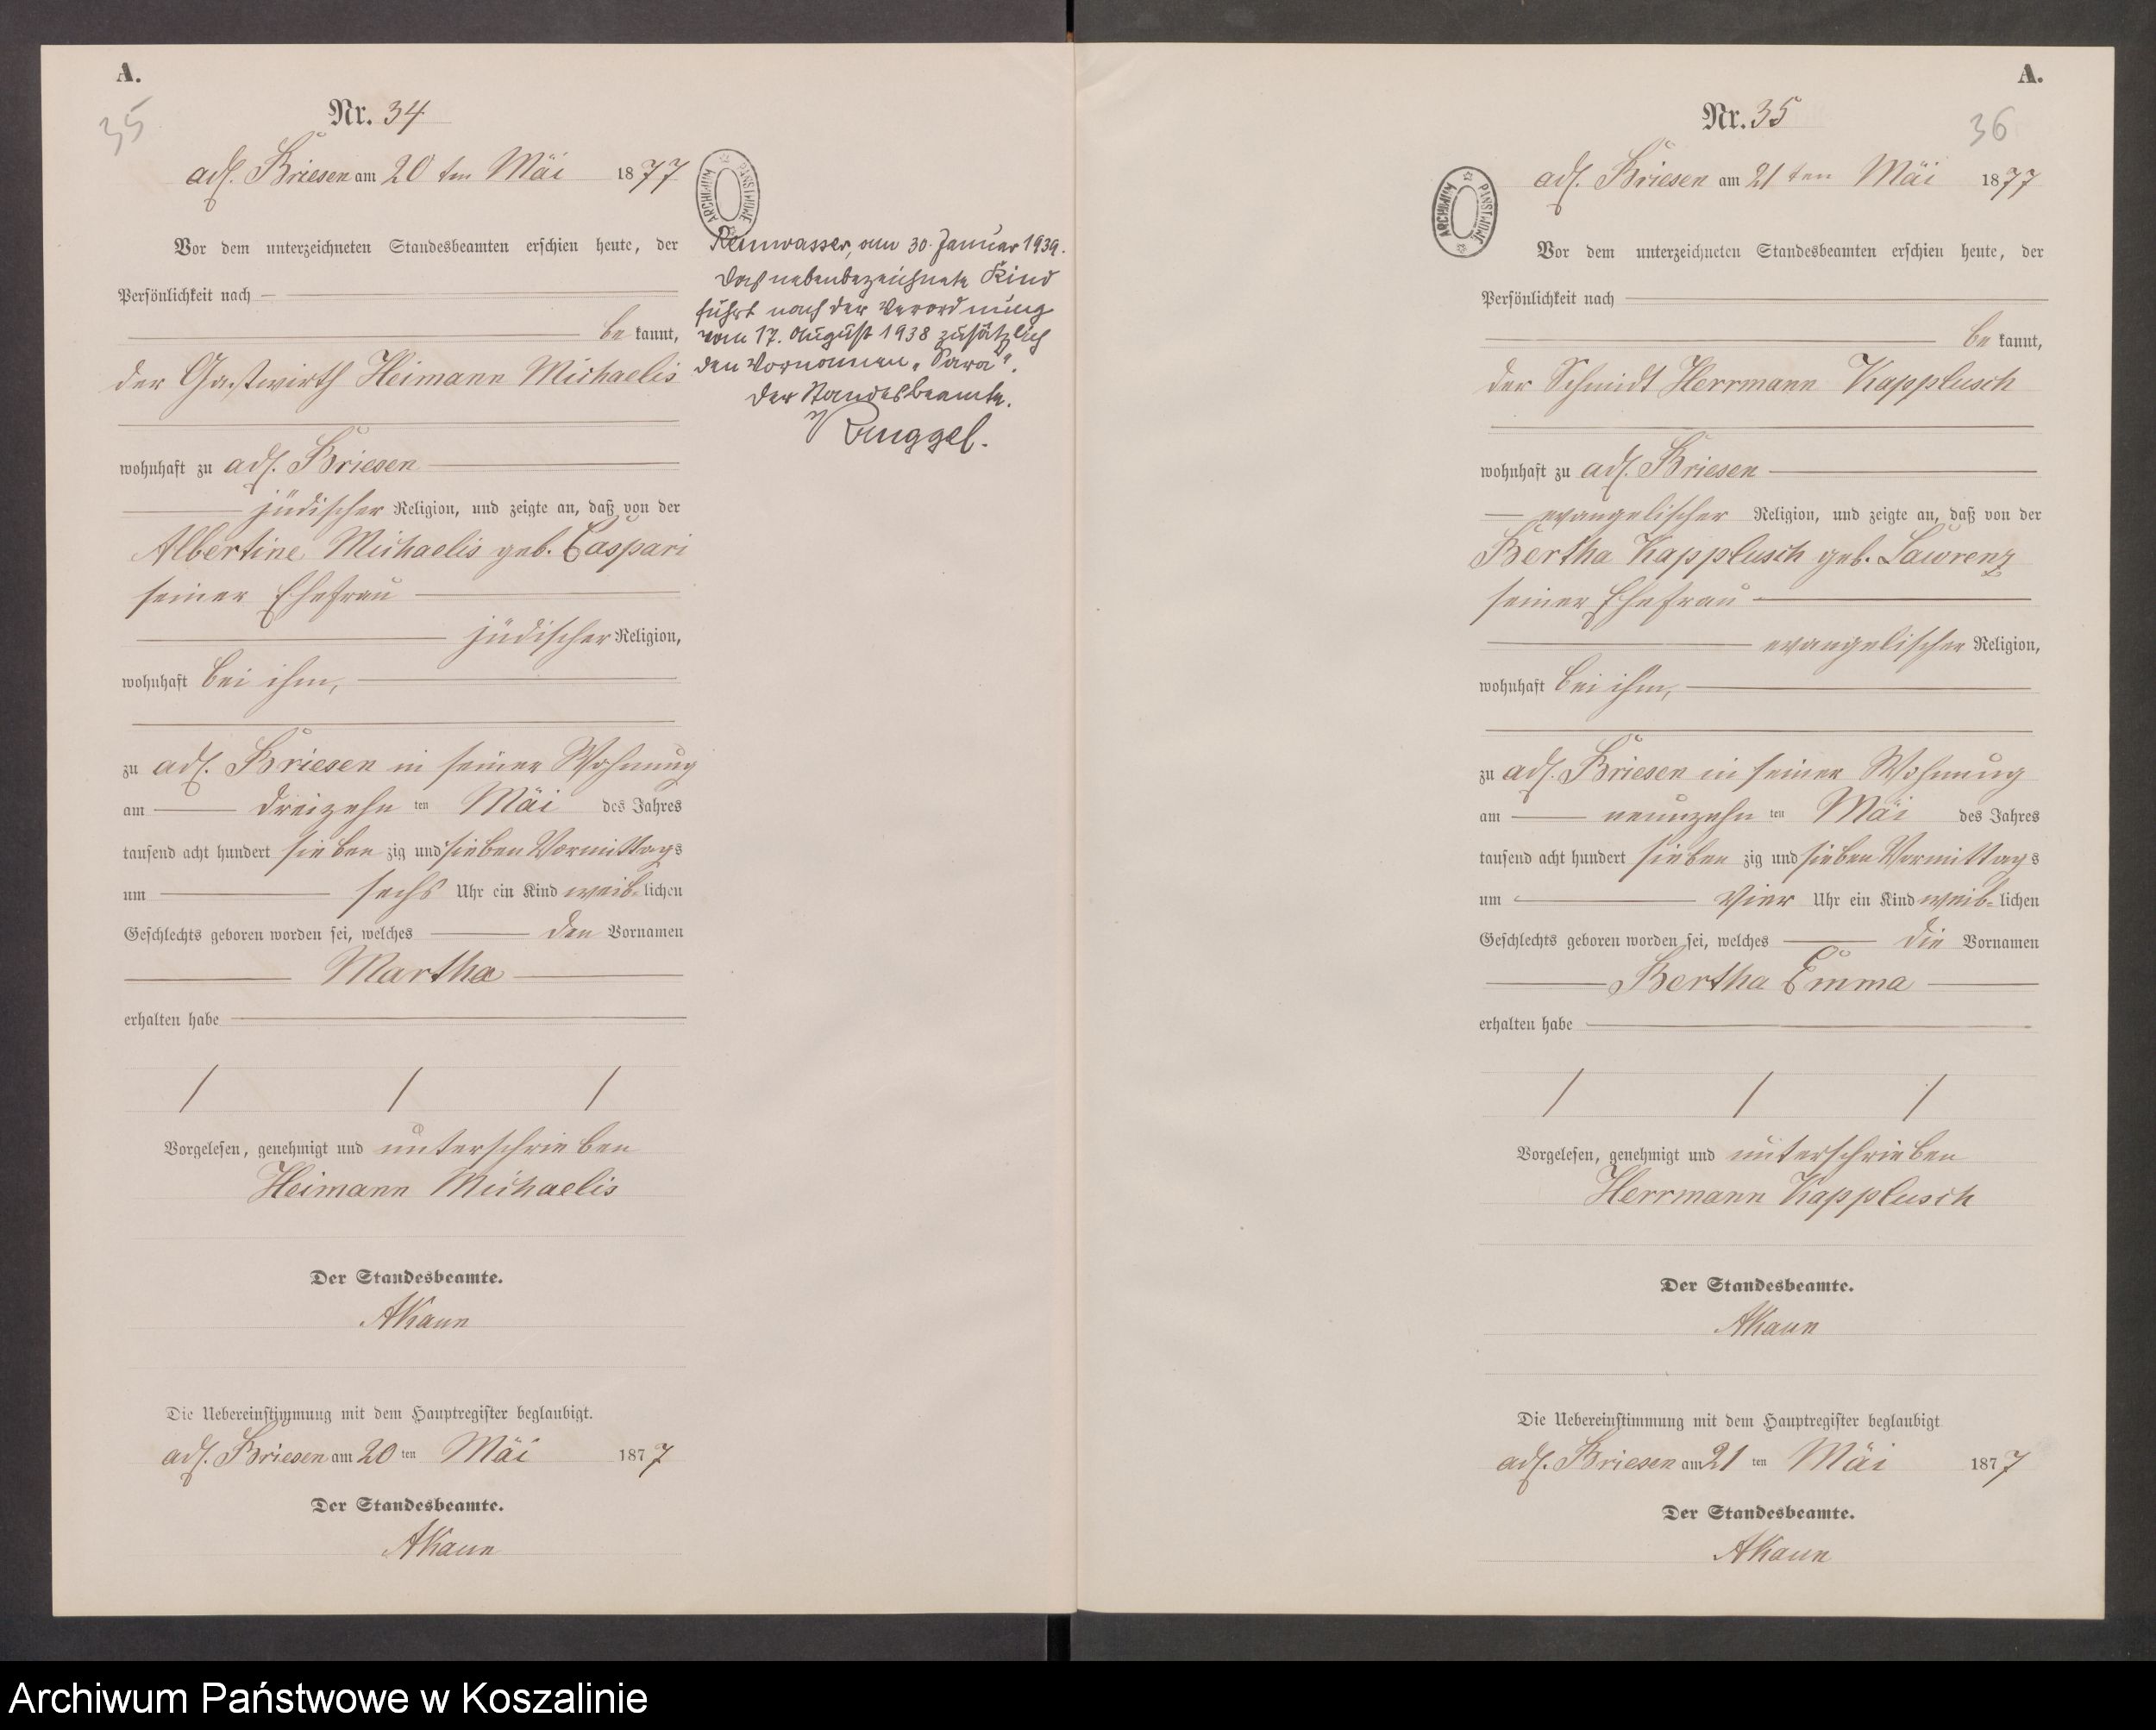 A.
35
Nr. 34
adl. Briesen am 20 ten Mai 1877
ARCHIWUM PAŃSTWOWE
Vor dem unterzeichneten Standesbeamten erschien heute, der
Persönlichkeit nach
be kannt,
der Gastwirth Heimann Michaelis
wohnhaft zu adl. Briesen
jüdischer Religion, und zeigte an, daß von der
Albertine Michaelis geb. Caspari
seiner Ehefrau
jüdischer Religion,
wohnhaft bei ihm,
zu adl. Briesen in seiner Wohnung
am dreizehn ten Mai des Jahres
tausend acht hundert sieben zig und sieben Vormittags
um sechs Uhr ein Kind weib-lichen
Geschlechts geboren worden sei, welches den Vornamen
Martha
erhalten habe
Vorgelesen, genehmigt und unterschrieben
Heimann Michaelis
Der Standesbeamte.
AKaun
Die Uebereinstimmung mit dem Hauptregister beglaubigt.
adl. Briesen am 20 ten Mai 1877
Der Standesbeamte.
AKaun
am 30. Januar 1939.
Das nebenbezeichnete Kind
führt nach der Verordnung
vom 17. August 1938 zusätzlich
den Vornamen "Sara".
Der Standesbeamte.
A.
36
Nr. 35
adl. Briesen am 21 ten Mai 1877
ARCHIWUM PAŃSTWOWE
Vor dem unterzeichneten Standesbeamten erschien heute, der
Persönlichkeit nach
be kannt,
der Schmidt Herrmann Kapplusch
wohnhaft zu adl. Briesen
evangelischer Religion, und zeigte an, daß von der
Bertha Kapplusch geb. Lawrenz
seiner Ehefrau
evangelischer Religion,
wohnhaft bei ihm,
zu adl. Briesen in seiner Wohnung
am neunzehn ten Mai des Jahres
tausend acht hundert sieben zig und sieben Vormittags
um vier Uhr ein Kind weib-lichen
Geschlechts geboren worden sei, welches die Vornamen
Bertha Emma
erhalten habe
Vorgelesen, genehmigt und unterschrieben
Herrmann Kapplusch
Der Standesbeamte.
AKaun
Die Uebereinstimmung mit dem Hauptregister beglaubigt
adl. Briesen am 21 ten Mai 1877
Der Standesbeamte.
AKaun
Archiwum Państwowe w Koszalinie